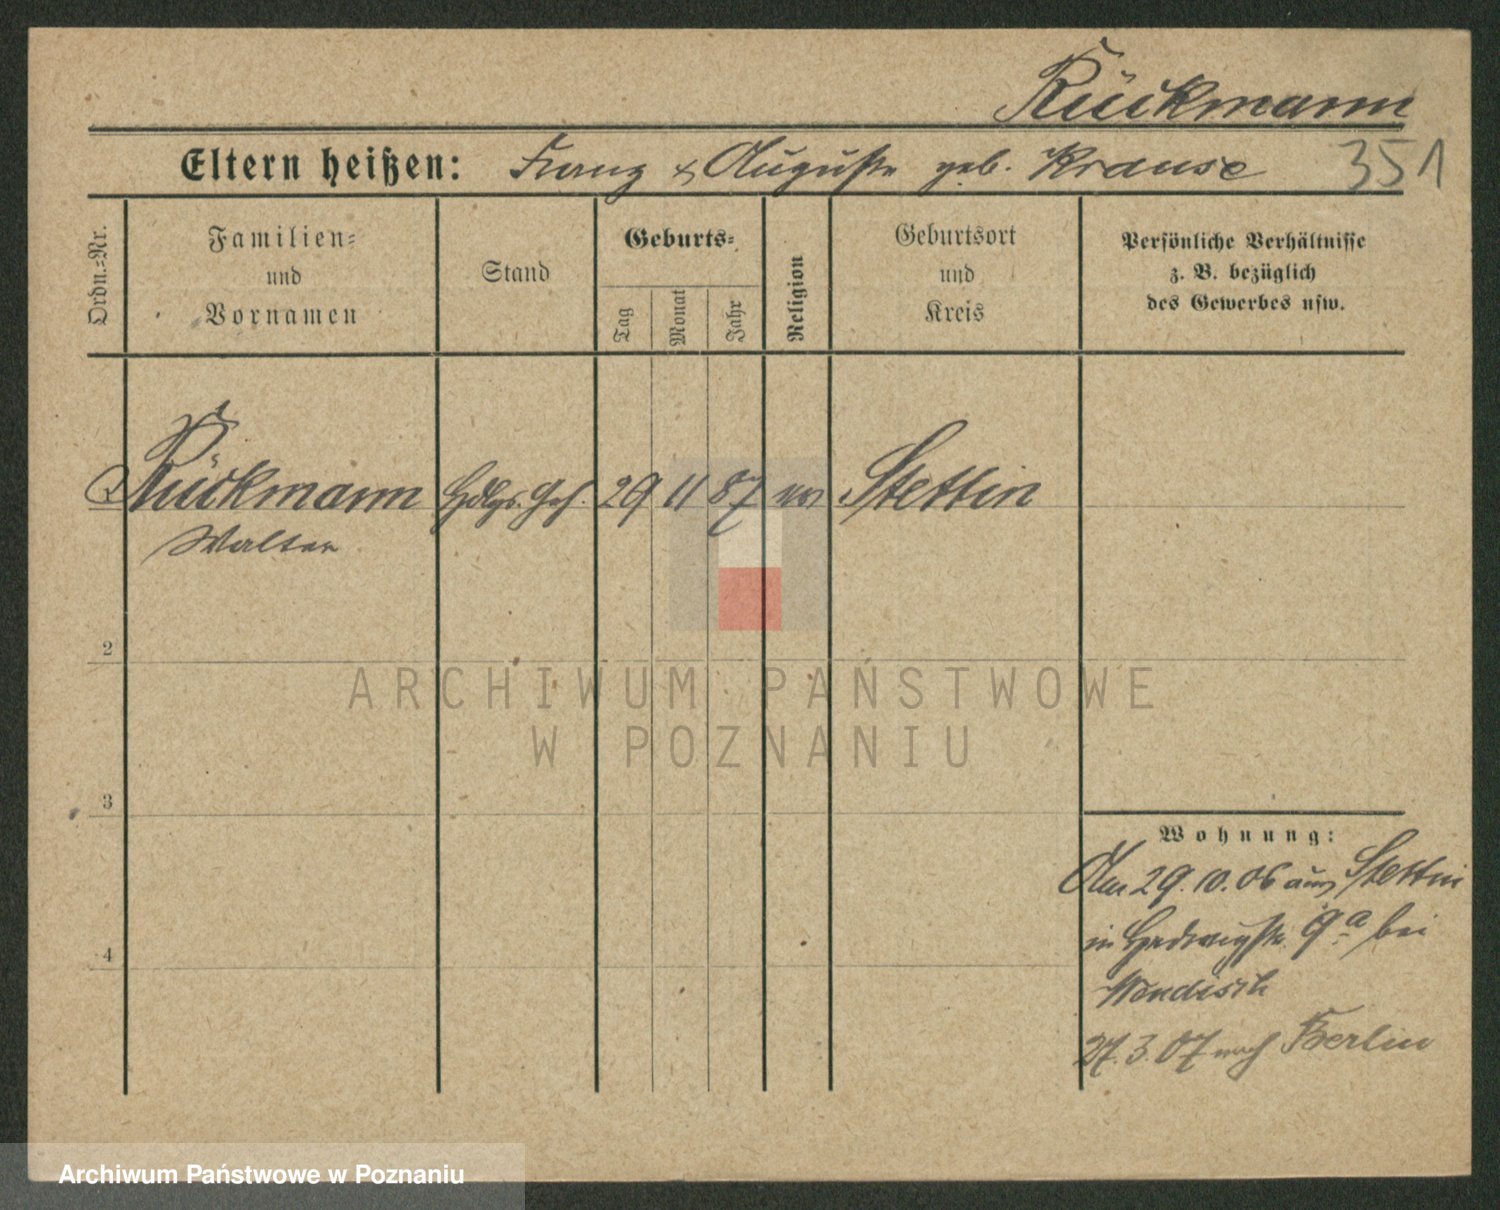 Rückmann
Eltern heißen: Franz & Auguste geb. Krause 351
Ordn.=Nr.
Familien=
und
Vornamen
Stand
Geburts=
Tag
Monat
Jahr
Religion
Geburtsort
und
Kreis
Persönliche Verhältnisse
z. B. bezüglich
des Gewerbes usw.
Rückmann Hdlgs. Geh. 29 11 87 ev Stettin
Walter
2
3
4
Wohnung:
Am 29.10.06 aus Stettin
in Hedwigstr. 9a bei
Wendisch
27.3.07 nach Berlin
ARCHIWUM PAŃSTWOWE
W POZNANIU
Archiwum Państwowe w Poznaniu